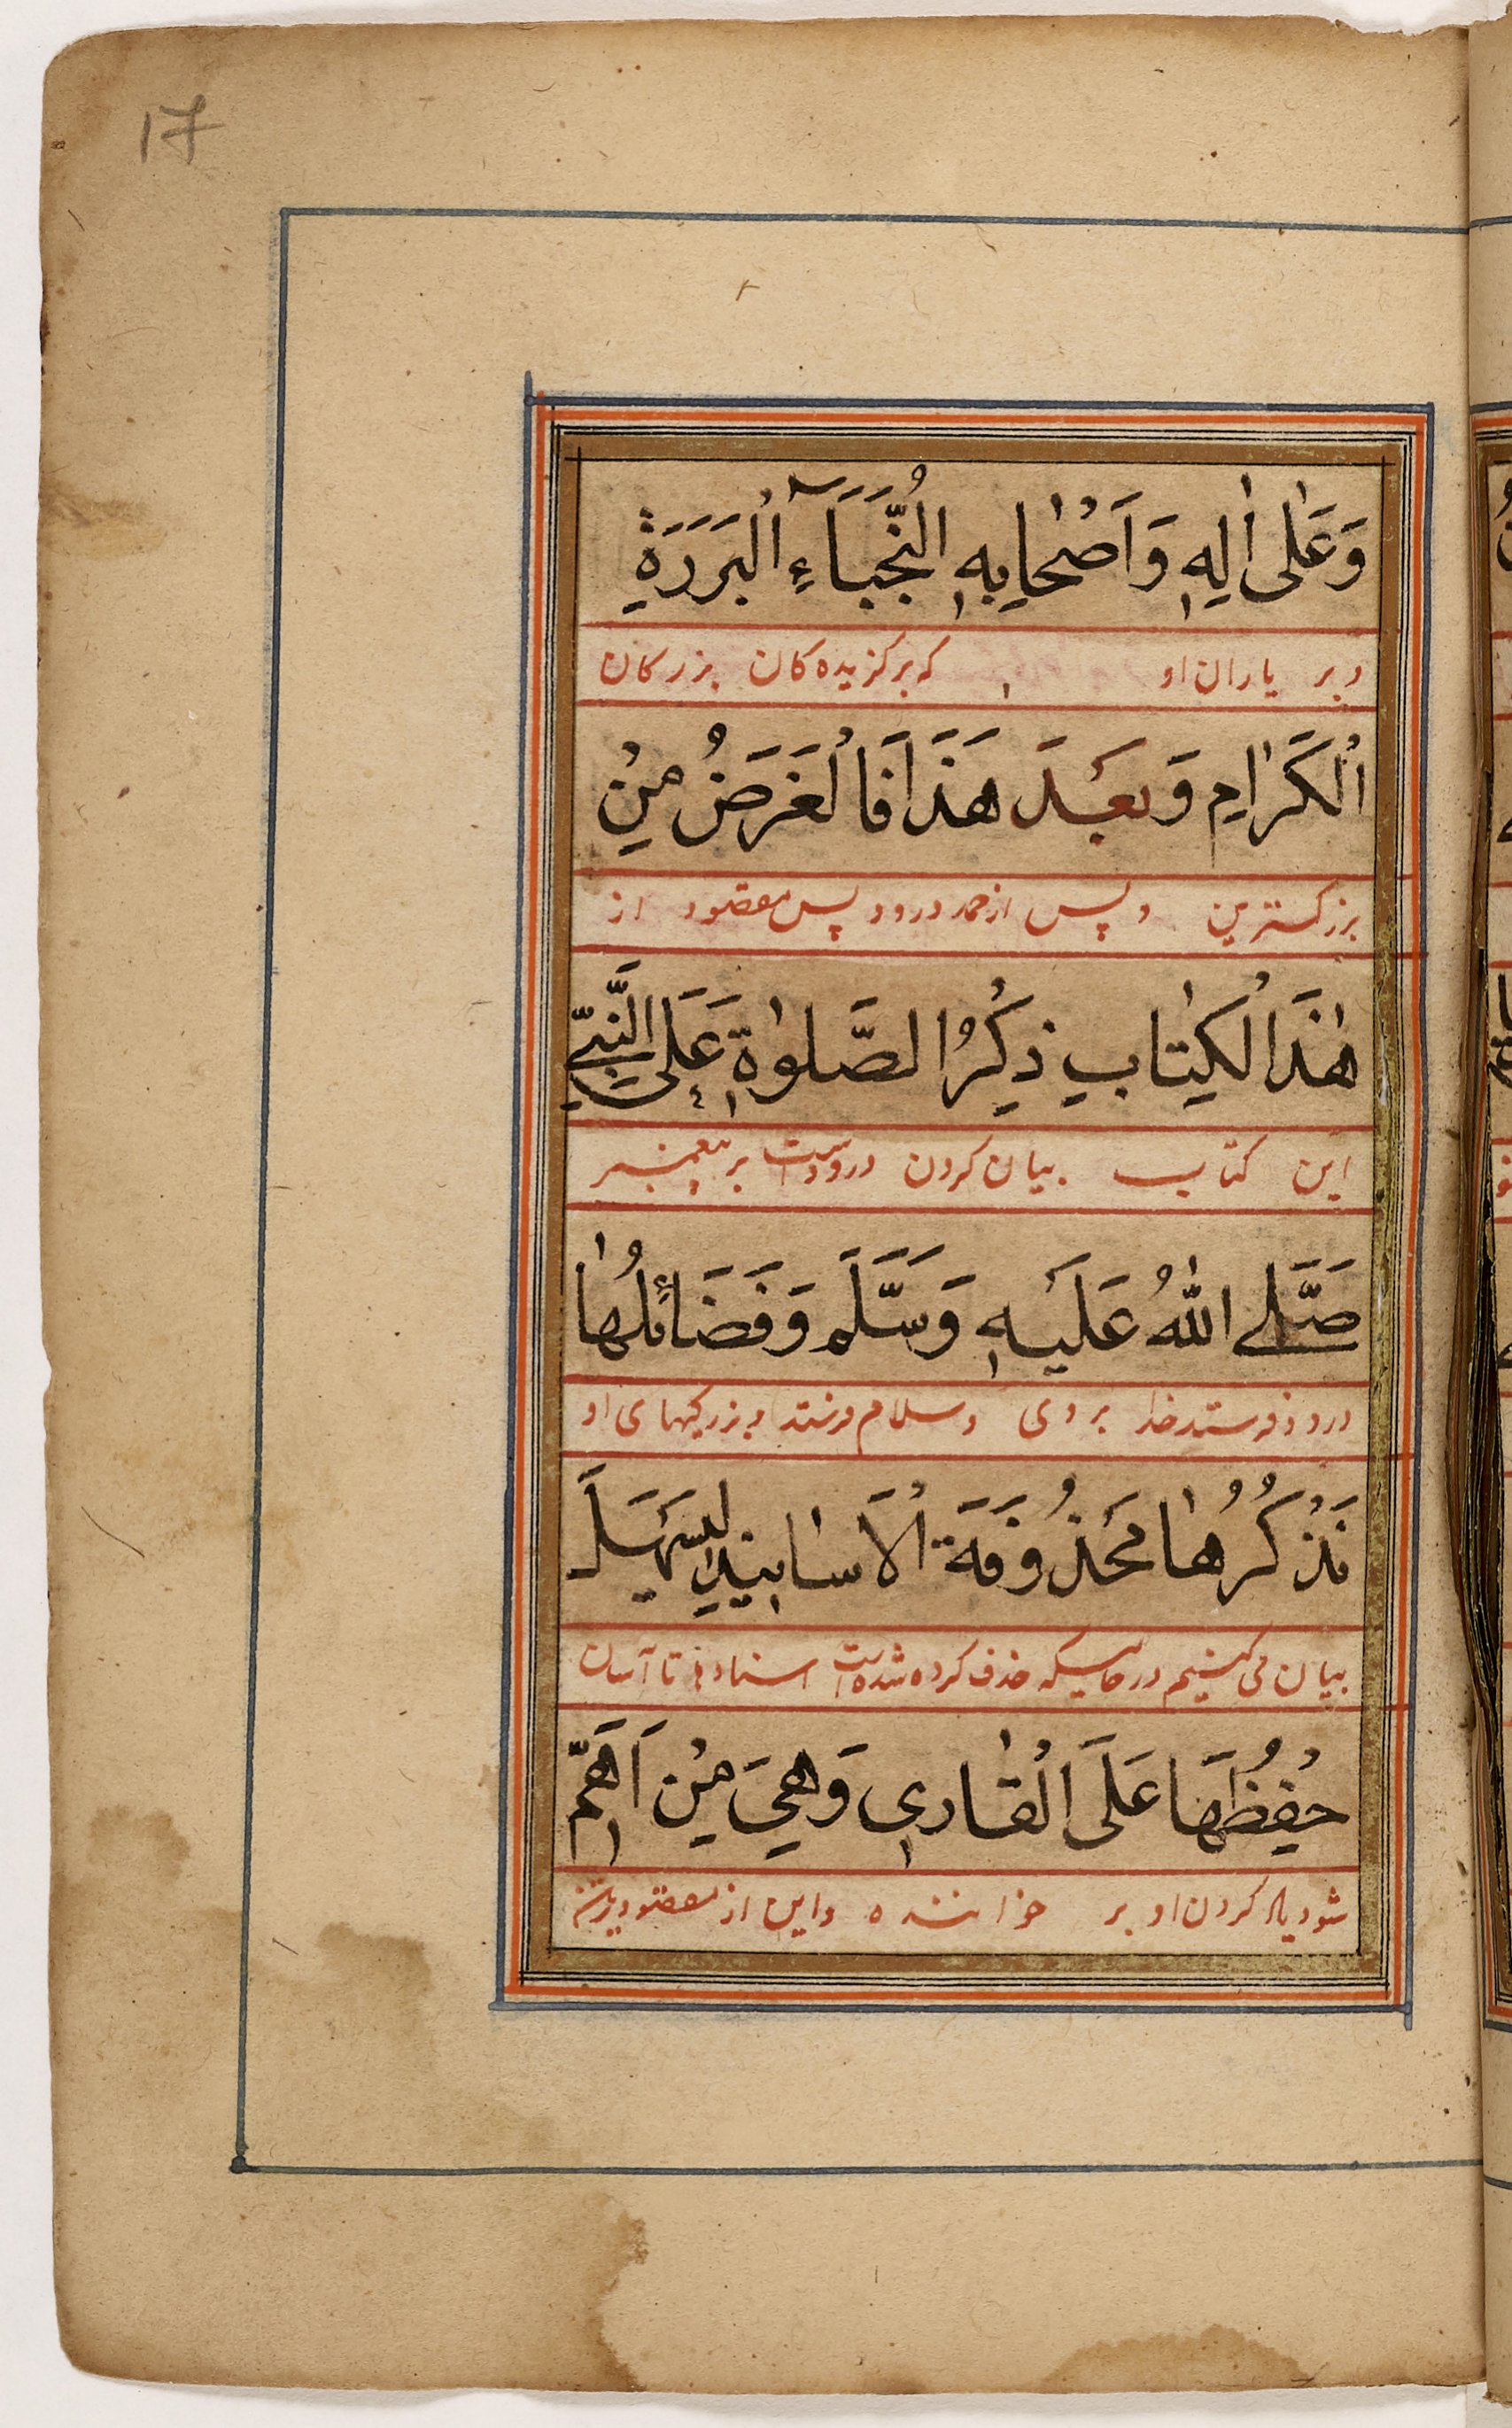 17
وَعَلٰى اٰلِهٖ وَاَصْحٰابِهٖ النُّجَبَآءِ اْلبَرَرَةِ
وبر یاران او که برکزیده کان بزرکان
اْلكَرٰامِ وَبَعْدَ هَذَا فَالْغَرَضُ مِنْ
بزرکسترین و پس از حمد درود پس مقصود از
هٰذَا لْكِتٰابِ ذِكْرُ الصَّلوٰةِ عَلَى النَّبِيِّ
این کتاب بیان کردن درودست بر پیغمبر
صَلَّے اللّٰهُ عَلَيْهِ وَسَلَّمَ وَفَضَائِلُهٰا
درود فرستد خدا بروی و سلام فرستد و بزرکیهای او
نَذْكُرُهٰا مَحْذُوفَةَ اْلاَسٰانِيدِ لِيَسْهَلَ
بیان می کنیم در حالیکه حذف کرده شده است اسنادها تا آسان
حِفْظُهَا عَلَى الْقٰارِي وَهِيَ مِنْ اَهَمِّ
شود یاد کردن او بر خواننده و این از